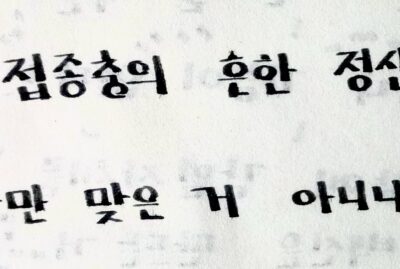 접종충의 흔한 정신
만 맞은 거 아니냐